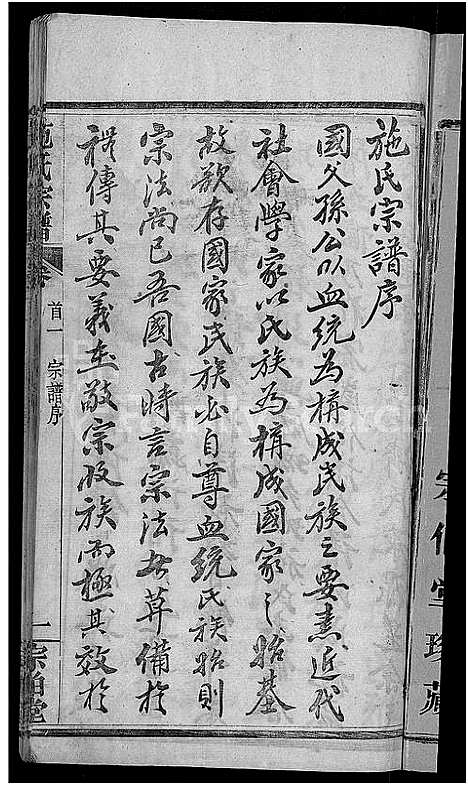 施氏宗譜序
國父孫公以血統為構成民族之要素近代
社會學家以氏族為構成國家之始基
故欲存國家民族必自尊血統氏族始則
宗法尚已吾國古時言宗法者莫備於
禮傳其要義在敬宗收族而極其效於
施氏宗譜
首一 宗譜序
一
珍藏